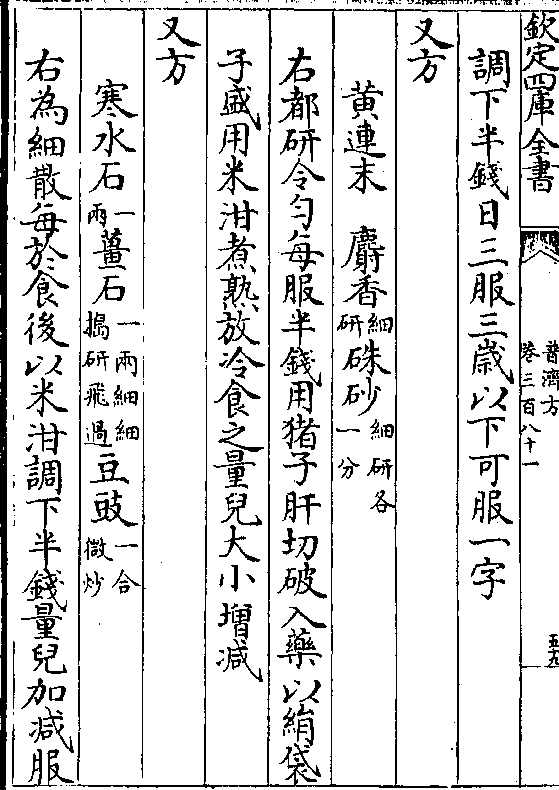 欽定四庫全書
普濟方
卷三百八十一
五十九
調下半錢日三服三歲以下可服一字
又方
黃連末 麝香細研 硃砂細研各一分
右都研令勻每服半錢用猪子肝切破入藥以絹袋
子盛用米泔煮熟放冷食之量兒大小增減
又方
寒水石一兩 薑石一兩細細搗研飛過 豆豉一合微炒
右為細散每於食後以米泔調下半錢量兒加減服